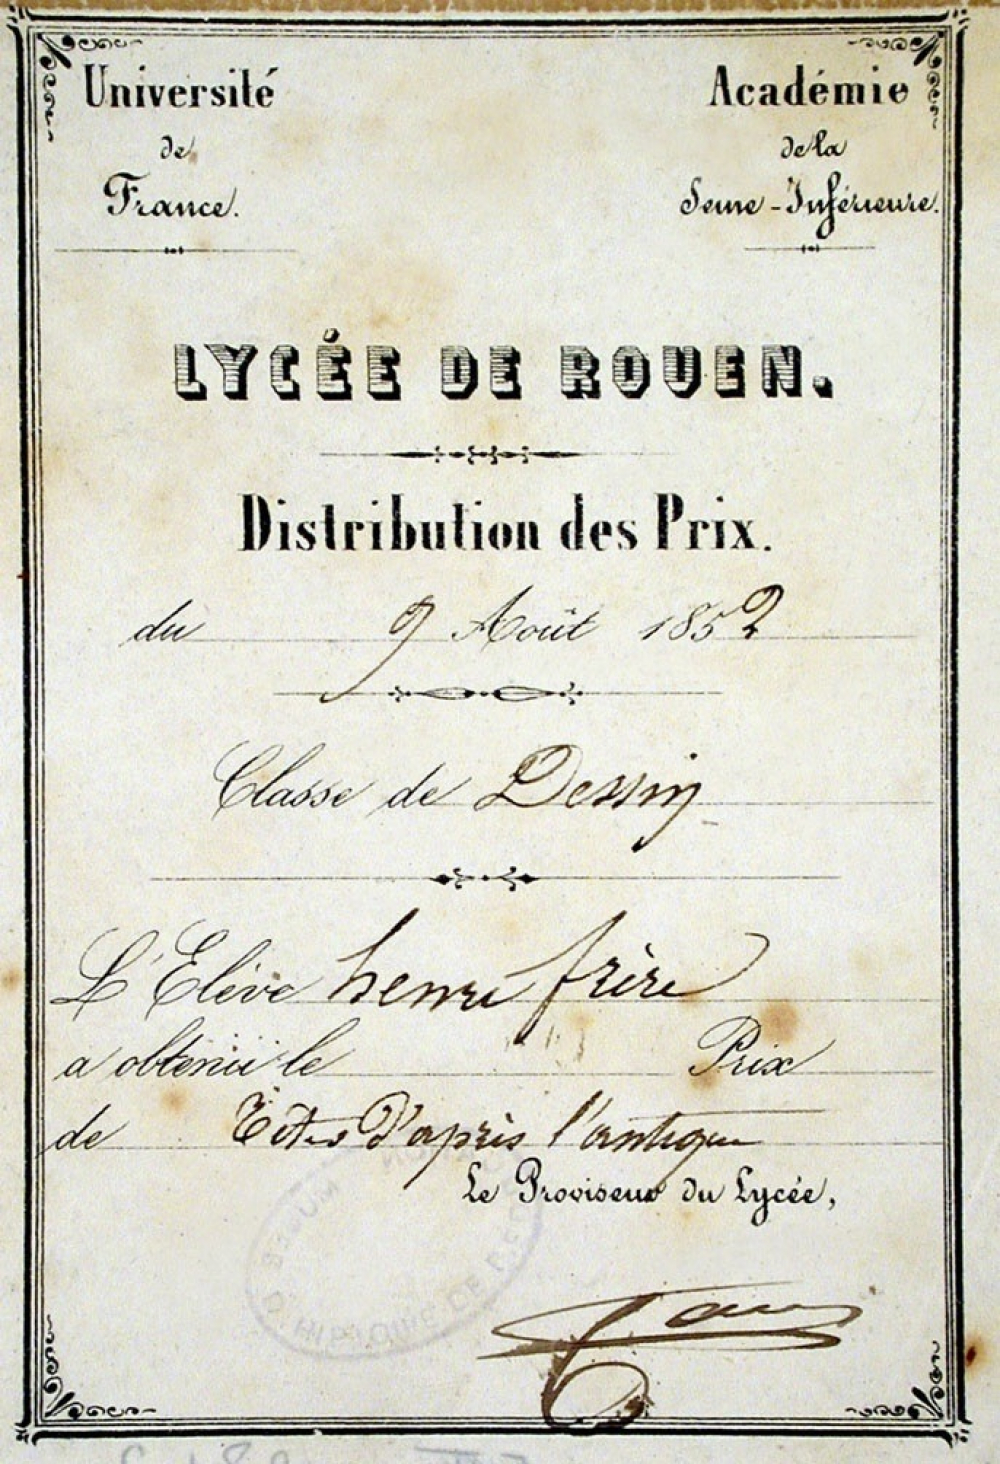 Université
de
France.
Académie
de la
Seine-Inférieure.
LYCÉE DE ROUEN.
Distribution des Prix.
du 9 Août 1852
Classe de Dessin
L'Elève henri frère
a obtenu le Prix
de Têtes d'après l'antique
Le Proviseur du Lycée,